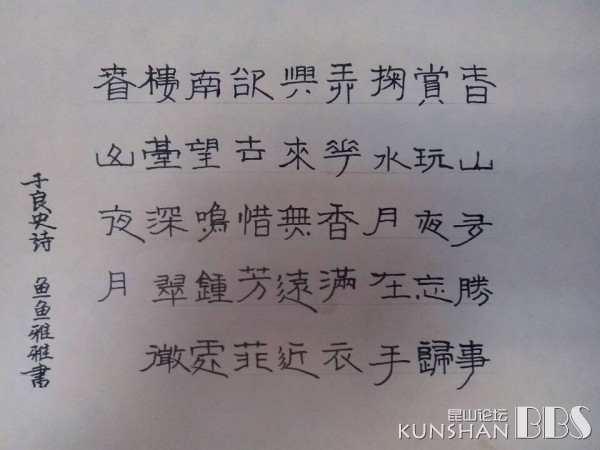 春山多勝事
賞玩夜忘歸
掬水月在手
弄花香滿衣
興來無遠近
欲去惜芳菲
南望鳴鍾處
樓臺深翠微
春山夜月
于良史詩 鱼鱼雅雅書
昆山论坛
KUNSHAN BBS